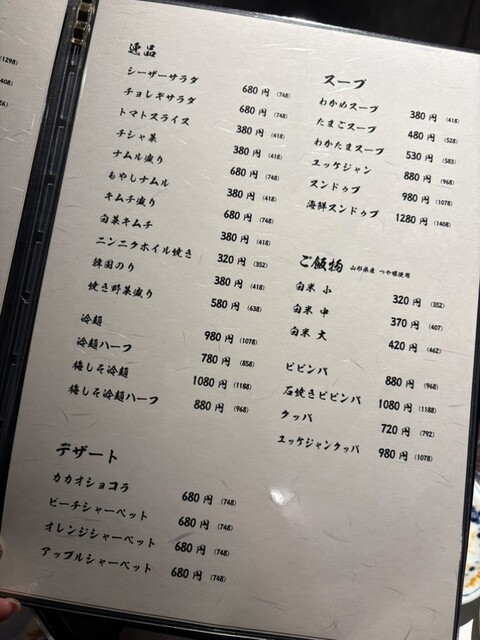 (1298)
408)
26)
逸品
シーザーサラダ 680円 (748)
チョレギサラダ 680円 (748)
トマトスライス 380円 (418)
チシャ菜 380円 (418)
ナムル盛り 680円 (748)
もやしナムル 380円 (418)
キムチ盛り 680円 (748)
白菜キムチ 380円 (418)
ニンニクホイル焼き 320円 (352)
韓国のり 380円 (418)
焼き野菜盛り 580円 (638)
冷麺 980円 (1078)
冷麺ハーフ 780円 (858)
梅しそ冷麺 1080円 (1188)
梅しそ冷麺ハーフ 880円 (968)
デザート
カカオショコラ 680円 (748)
ピーチシャーベット 680円 (748)
オレンジシャーベット 680円 (748)
アップルシャーベット 680円 (748)
スープ
わかめスープ 380円 (418)
たまごスープ 480円 (528)
わかたまスープ 530円 (583)
ユッケジャン 880円 (968)
スンドゥブ 980円 (1078)
海鮮スンドゥブ 1280円 (1408)
ご飯物 山形県産 つや姫使用
白米 小 320円 (352)
白米 中 370円 (407)
白米 大 420円 (462)
ビビンバ 880円 (968)
石焼きビビンバ 1080円 (1188)
クッパ 720円 (792)
ユッケジャンクッパ 980円 (1078)